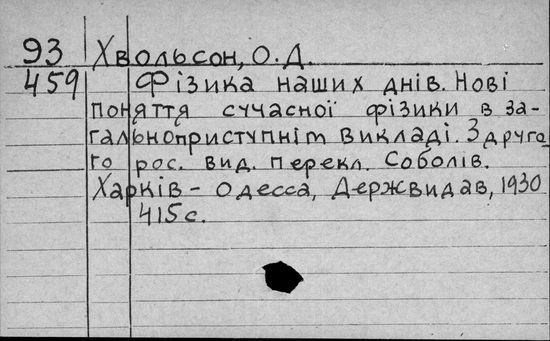 93 Хвольсон, О.Д.
459 Фізика наших днів. Нові
поняття сучасної фізики в за-
гальноприступнім викладі. З друго-
го рос. вид. перекл. Соболів.
Харків - Одесса, Держвидав, 1930
415 с.